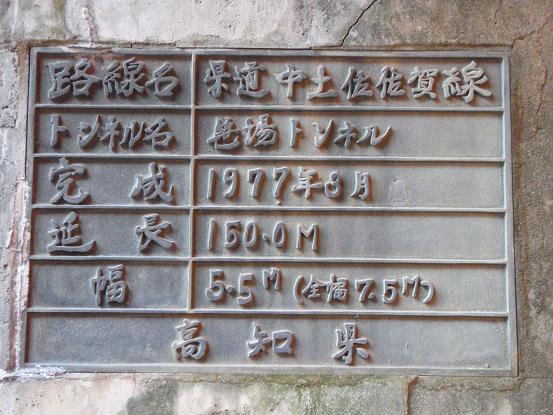 路線名 県道中土佐佐賀線
トンネル名 笹場トンネル
完成 1977年3月
延長 150.0M
幅 5.5M (全幅7.5M)
高知県